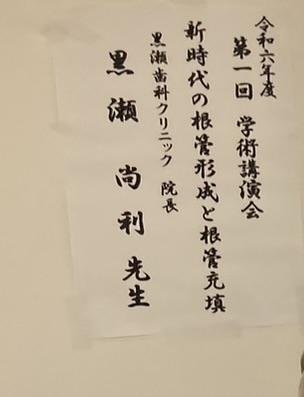 令和六年度
第一回 学術講演会
新時代の根管形成と根管充填
黒瀬歯科クリニック 院長
黒瀬 尚利 先生